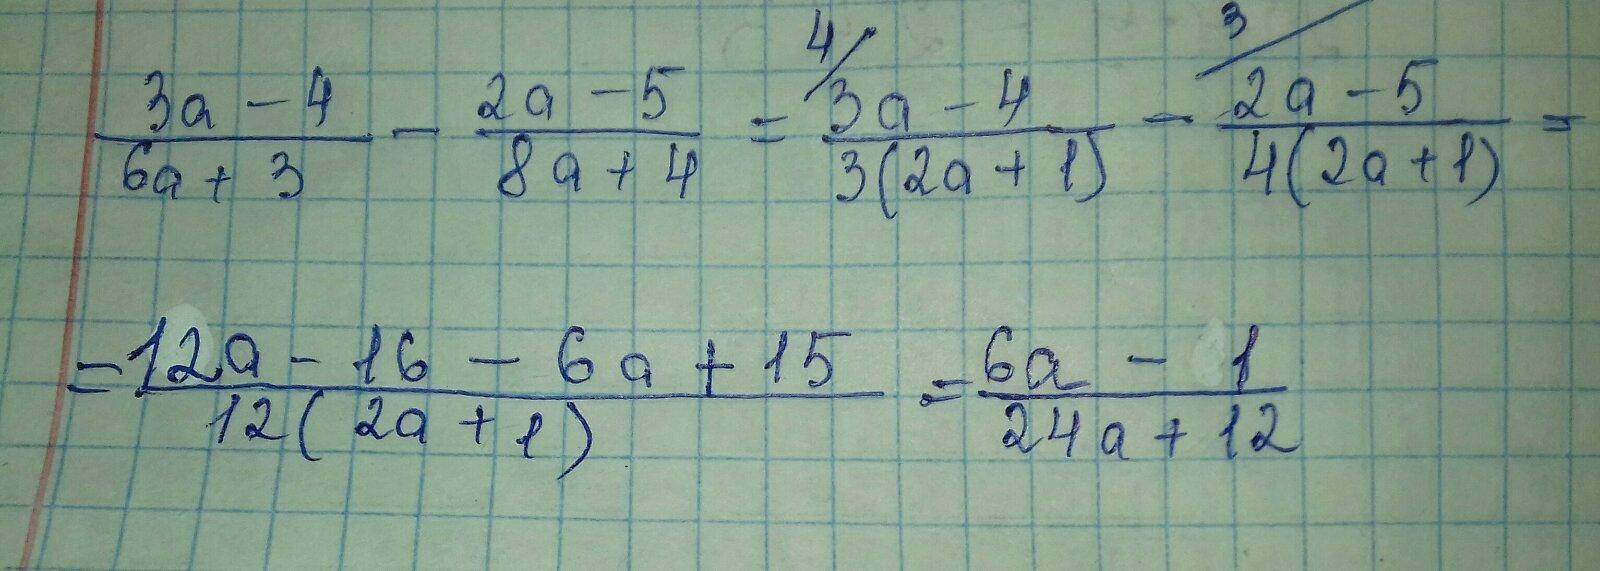 4/ 3/
(3a - 4)/(6a + 3) - (2a - 5)/(8a + 4) = (3a - 4)/(3(2a + 1)) - (2a - 5)/(4(2a + 1)) =
= (12a - 16 - 6a + 15)/(12(2a + 1)) = (6a - 1)/(24a + 12)